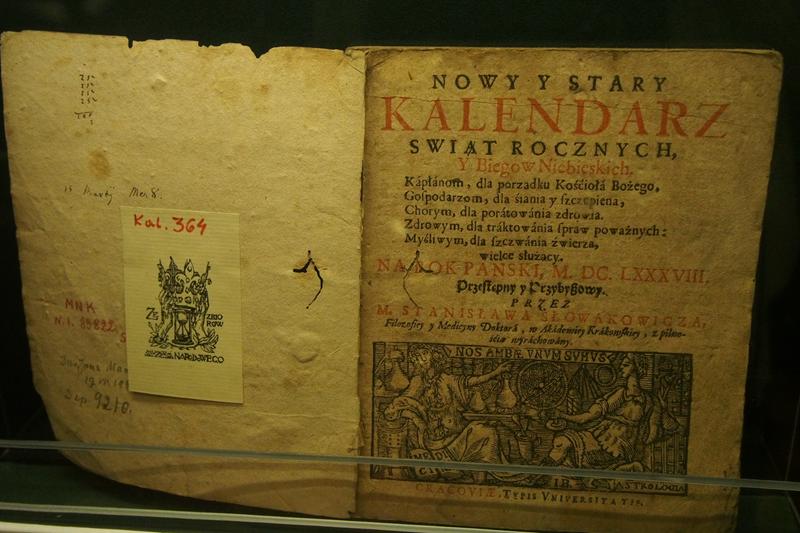 Kal. 364
ZE
ZBIO
RÓW
NARODOWEGO
MNK
NOWY Y STARY
KALENDARZ
SWIĄT ROCZNYCH,
Y Biegow Niebieskich.
Kápłánom, dla porzadku Kośćiołá Bożego,
Gospodarzom, dla śiania y szczepiena,
Chorym, dla porátowánia zdrowia.
Zdrowym, dla tráktowánia spraw poważnych:
Myśliwym, dla szczwánia źwierza,
wielce służacy.
NA ROK PANSKI, M. DC. LXXXVIII.
Przestępny y Przybyszowy.
PRZEZ
M. STANISŁAWA SŁOWAKOWICZA,
Filozofiey y Medicyny Doktorá, w Akádemiey Krákowskiey, z pilno-
ścia wyráchowány.
NOS AMBÆ VNVM SVMVS
IB
ASTROLOGIA
CRACOVIÆ, TYPIS VNIVERSITATIS.